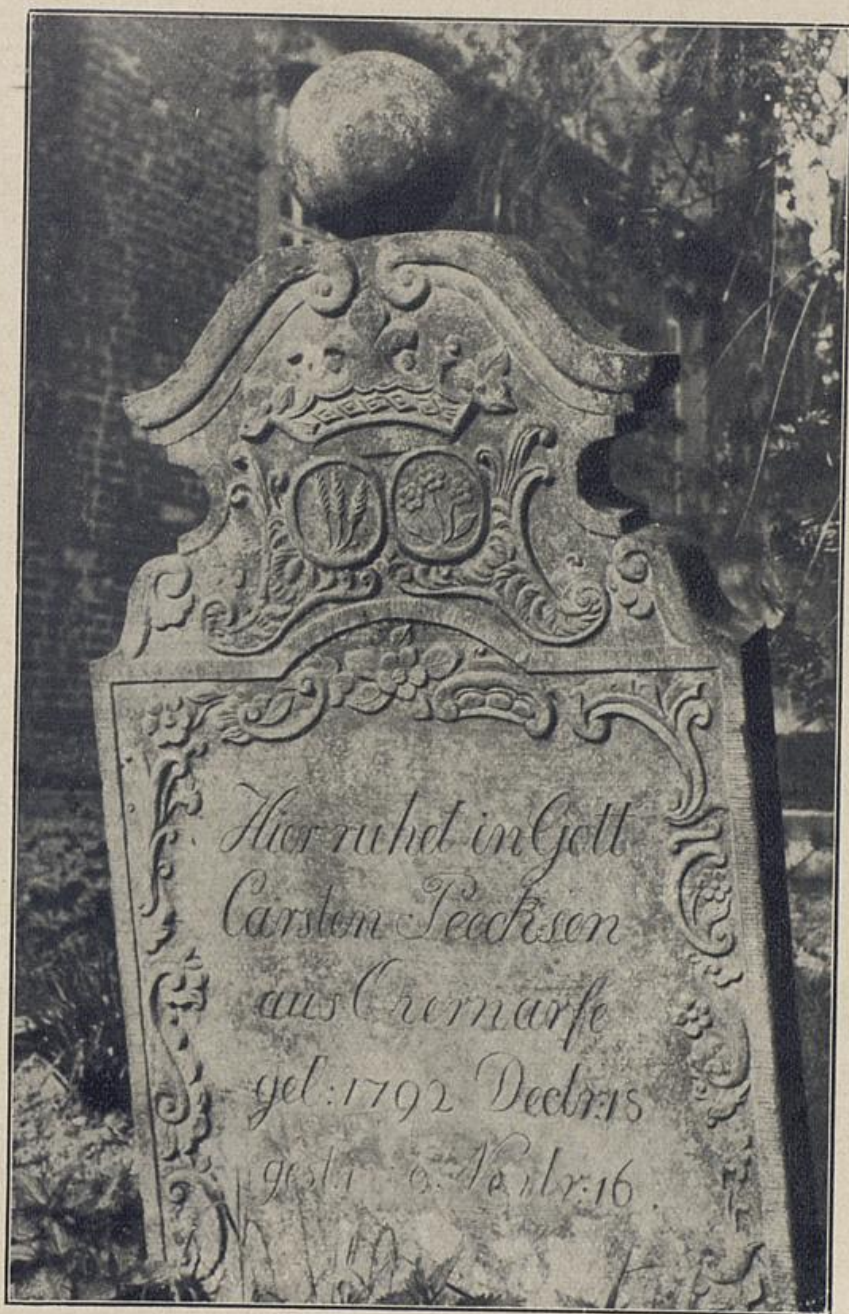 Hier ruhet in Gott
Carsten Peecksen
aus
geb: 1792 Decbr: 18
gest: Novbr: 16